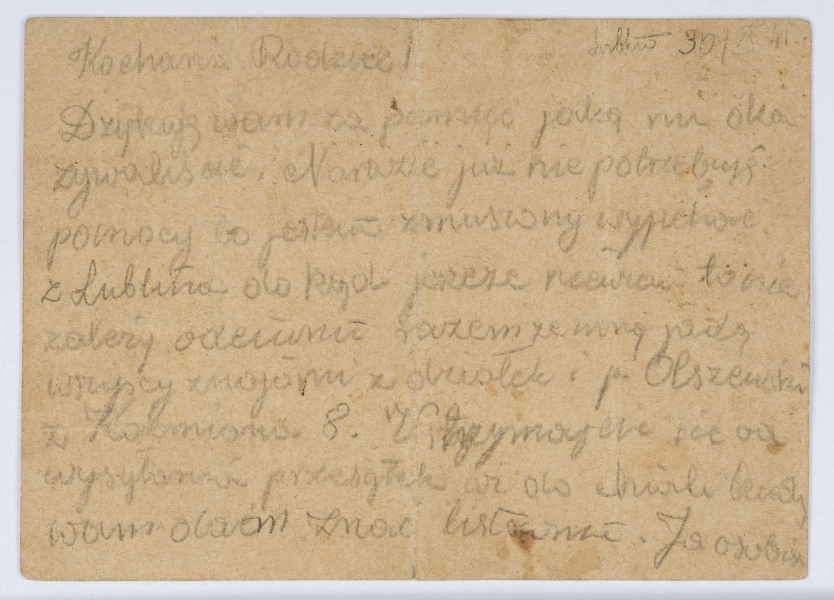 Lublin 30/VI 41.
Kochani Rodzice!
Dzykuję wam za pamięć jaką mi oka
zywaliscie. Narazie już nie potrzebuję
pomocy bo jestem zmuszony wyjechac
z Lublina do kąd jeszcze niewiem to nie
zalezy odemnie razem ze mną jadą
wszyscy znajomi z działek i p. Olszewski
z Kozmiana 8. Wstrzymajcie sie od
wysyłania przesyłek az do chwili kiedy
wam dam znac listownie. Ja osobis